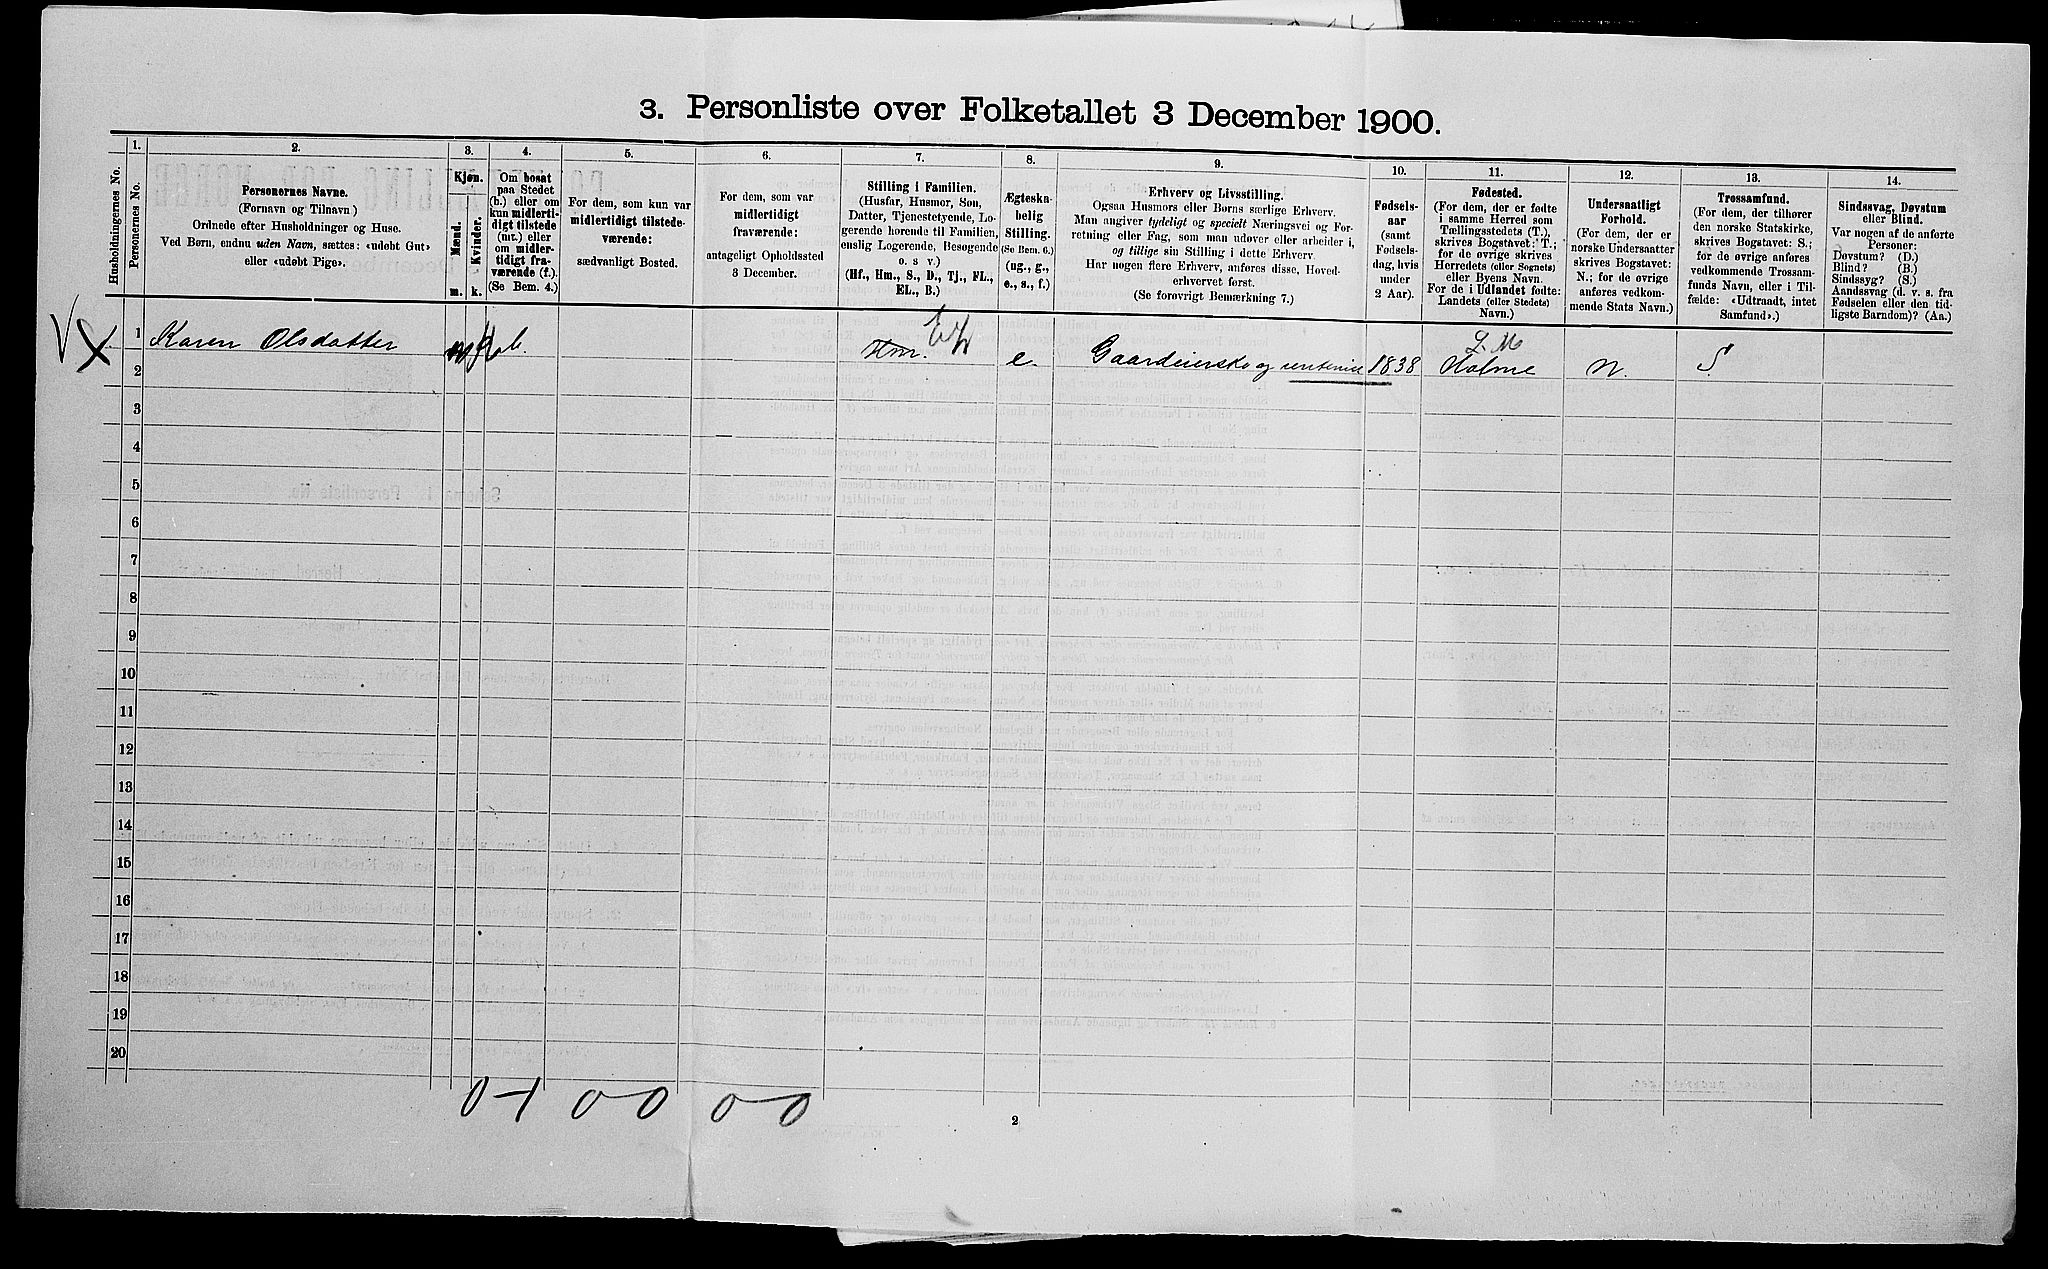 3. Personliste over Folketallet 3 December 1900.
Husholdningernes No.
1.
Personernes No.
2.
Personernes Navne.
(Fornavn og Tilnavn)
Ordnede efter Husholdninger og Huse.
Ved Børn, endnu uden Navn, sættes: «udøbt Gut»
eller «udøbt Pige».
3.
Kjøn.
Mænd.
Kvinder.
m. k.
4.
Om bosat
paa Stedet
(b.) eller om
kun midlerti-
digt tilstede
(mt.) eller
om midler-
tidigt fra-
værende (f.).
(Se Bem. 4.)
5.
For dem, som kun var
midlertidigt tilstede-
værende:
sædvanligt Bosted.
6.
For dem, som var
midlertidigt
fraværende:
antageligt Opholdssted
3 December.
7.
Stilling i Familien.
(Husfar, Husmor, Søn,
Datter, Tjenestetyende, Lo-
gerende hørende til Familien,
enslig Logerende, Besøgende
o. s v.)
(Hf., Hm., S., D., Tj., FL.,
EL., B.)
8.
Ægteska-
belig
Stilling.
(Se Bem. 6.)
(ug., g.,
e., s., f.)
9.
Erhverv og Livsstilling.
Ogsaa Husmors eller Børns særlige Erhverv.
Man angiver tydeligt og specielt Næringsvei og For-
retning eller Fag, som man udøver eller arbeider i,
og tillige sin Stilling i dette Erhverv.
Har nogen flere Erhverv, anføres disse, Hoved-
erhvervet først.
(Se forøvrigt Bemærkning 7.)
10.
Fødsels-
aar
(samt
Fødsels-
dag, hvis
under
2 Aar).
11.
Fødested.
(For dem, der er fødte
i samme Herred som
Tællingsstedets (T.),
skrives Bogstavet: T.;
for de øvrige skrives
Herredets (eller Sognets)
eller Byens Navn.
For de i Udlandet fødte:
Landets (eller Stedets)
Navn.)
12.
Undersaatligt
Forhold.
(For dem, der er
norske Undersaatter
skrives Bogstavet:
N.; for de øvrige
anføres vedkom-
mende Stats Navn.)
13.
Trossamfund.
(For dem, der tilhører
den norske Statskirke,
skrives Bogstavet: S.;
for de øvrige anføres
vedkommende Trossam-
funds Navn, eller i Til-
fælde: «Udtraadt, intet
Samfund».)
14.
Sindssvag, Døvstum
eller Blind.
Var nogen af de anførte
Personer:
Døvstum? (D.)
Blind? (B.)
Sindssyg? (S.)
Aandssvag (d. v. s. fra
Fødselen eller den tid-
ligste Barndom)? (Aa.)
1 Karen Olsdatter k b. Hm. e. Gaardeierske og 1838 Holme N. S.
2
3
4
5
6
7
8
9
10
11
12
13
14
15
16
17
18
19
20
0-1 0-0 0-0
2